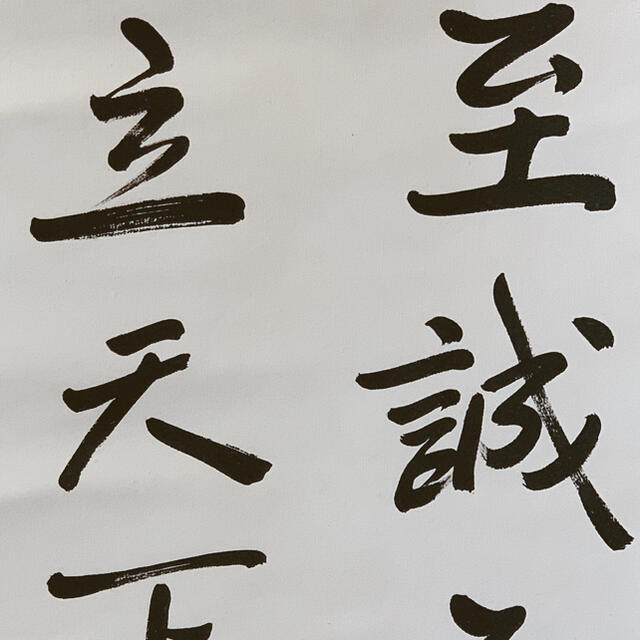 至誠
立天下